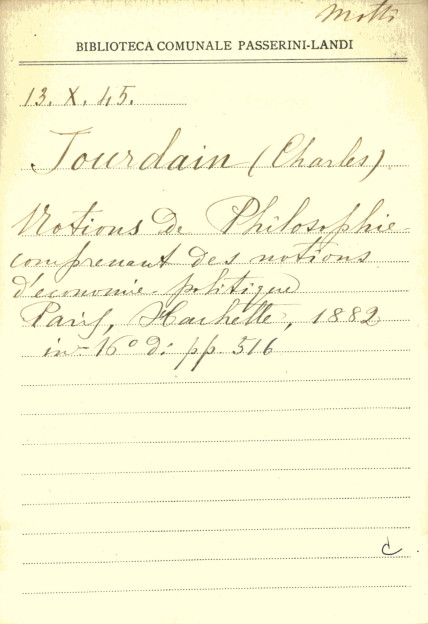 Motti
BIBLIOTECA COMUNALE PASSERINI-LANDI
13. X. 45.
Jourdain (Charles)
Notions de Philosophie
comprenant des notions
d'economie politique
Paris, Hachette, 1882
in-16° di pp. 516
C